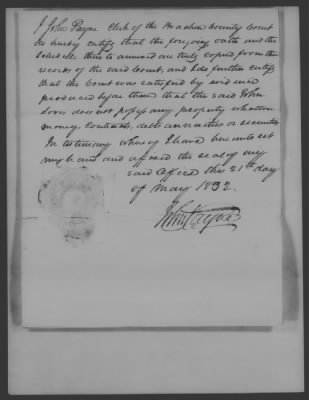 I John Payne Clerk of the Bracken County Court
do hereby certify that the foregoing oath and the
Schedule thereto annexed are truly copied from the
records of the said Court, and I do further certify
that the Court was satisfied by evidence
produced before them that the said John
does not possess any property whatever
money, Contracts, debts or securities
In testimony whereof I have hereunto set
my hand and affixed the seal of my
said office this 21st day
of May 1832.
John Payne